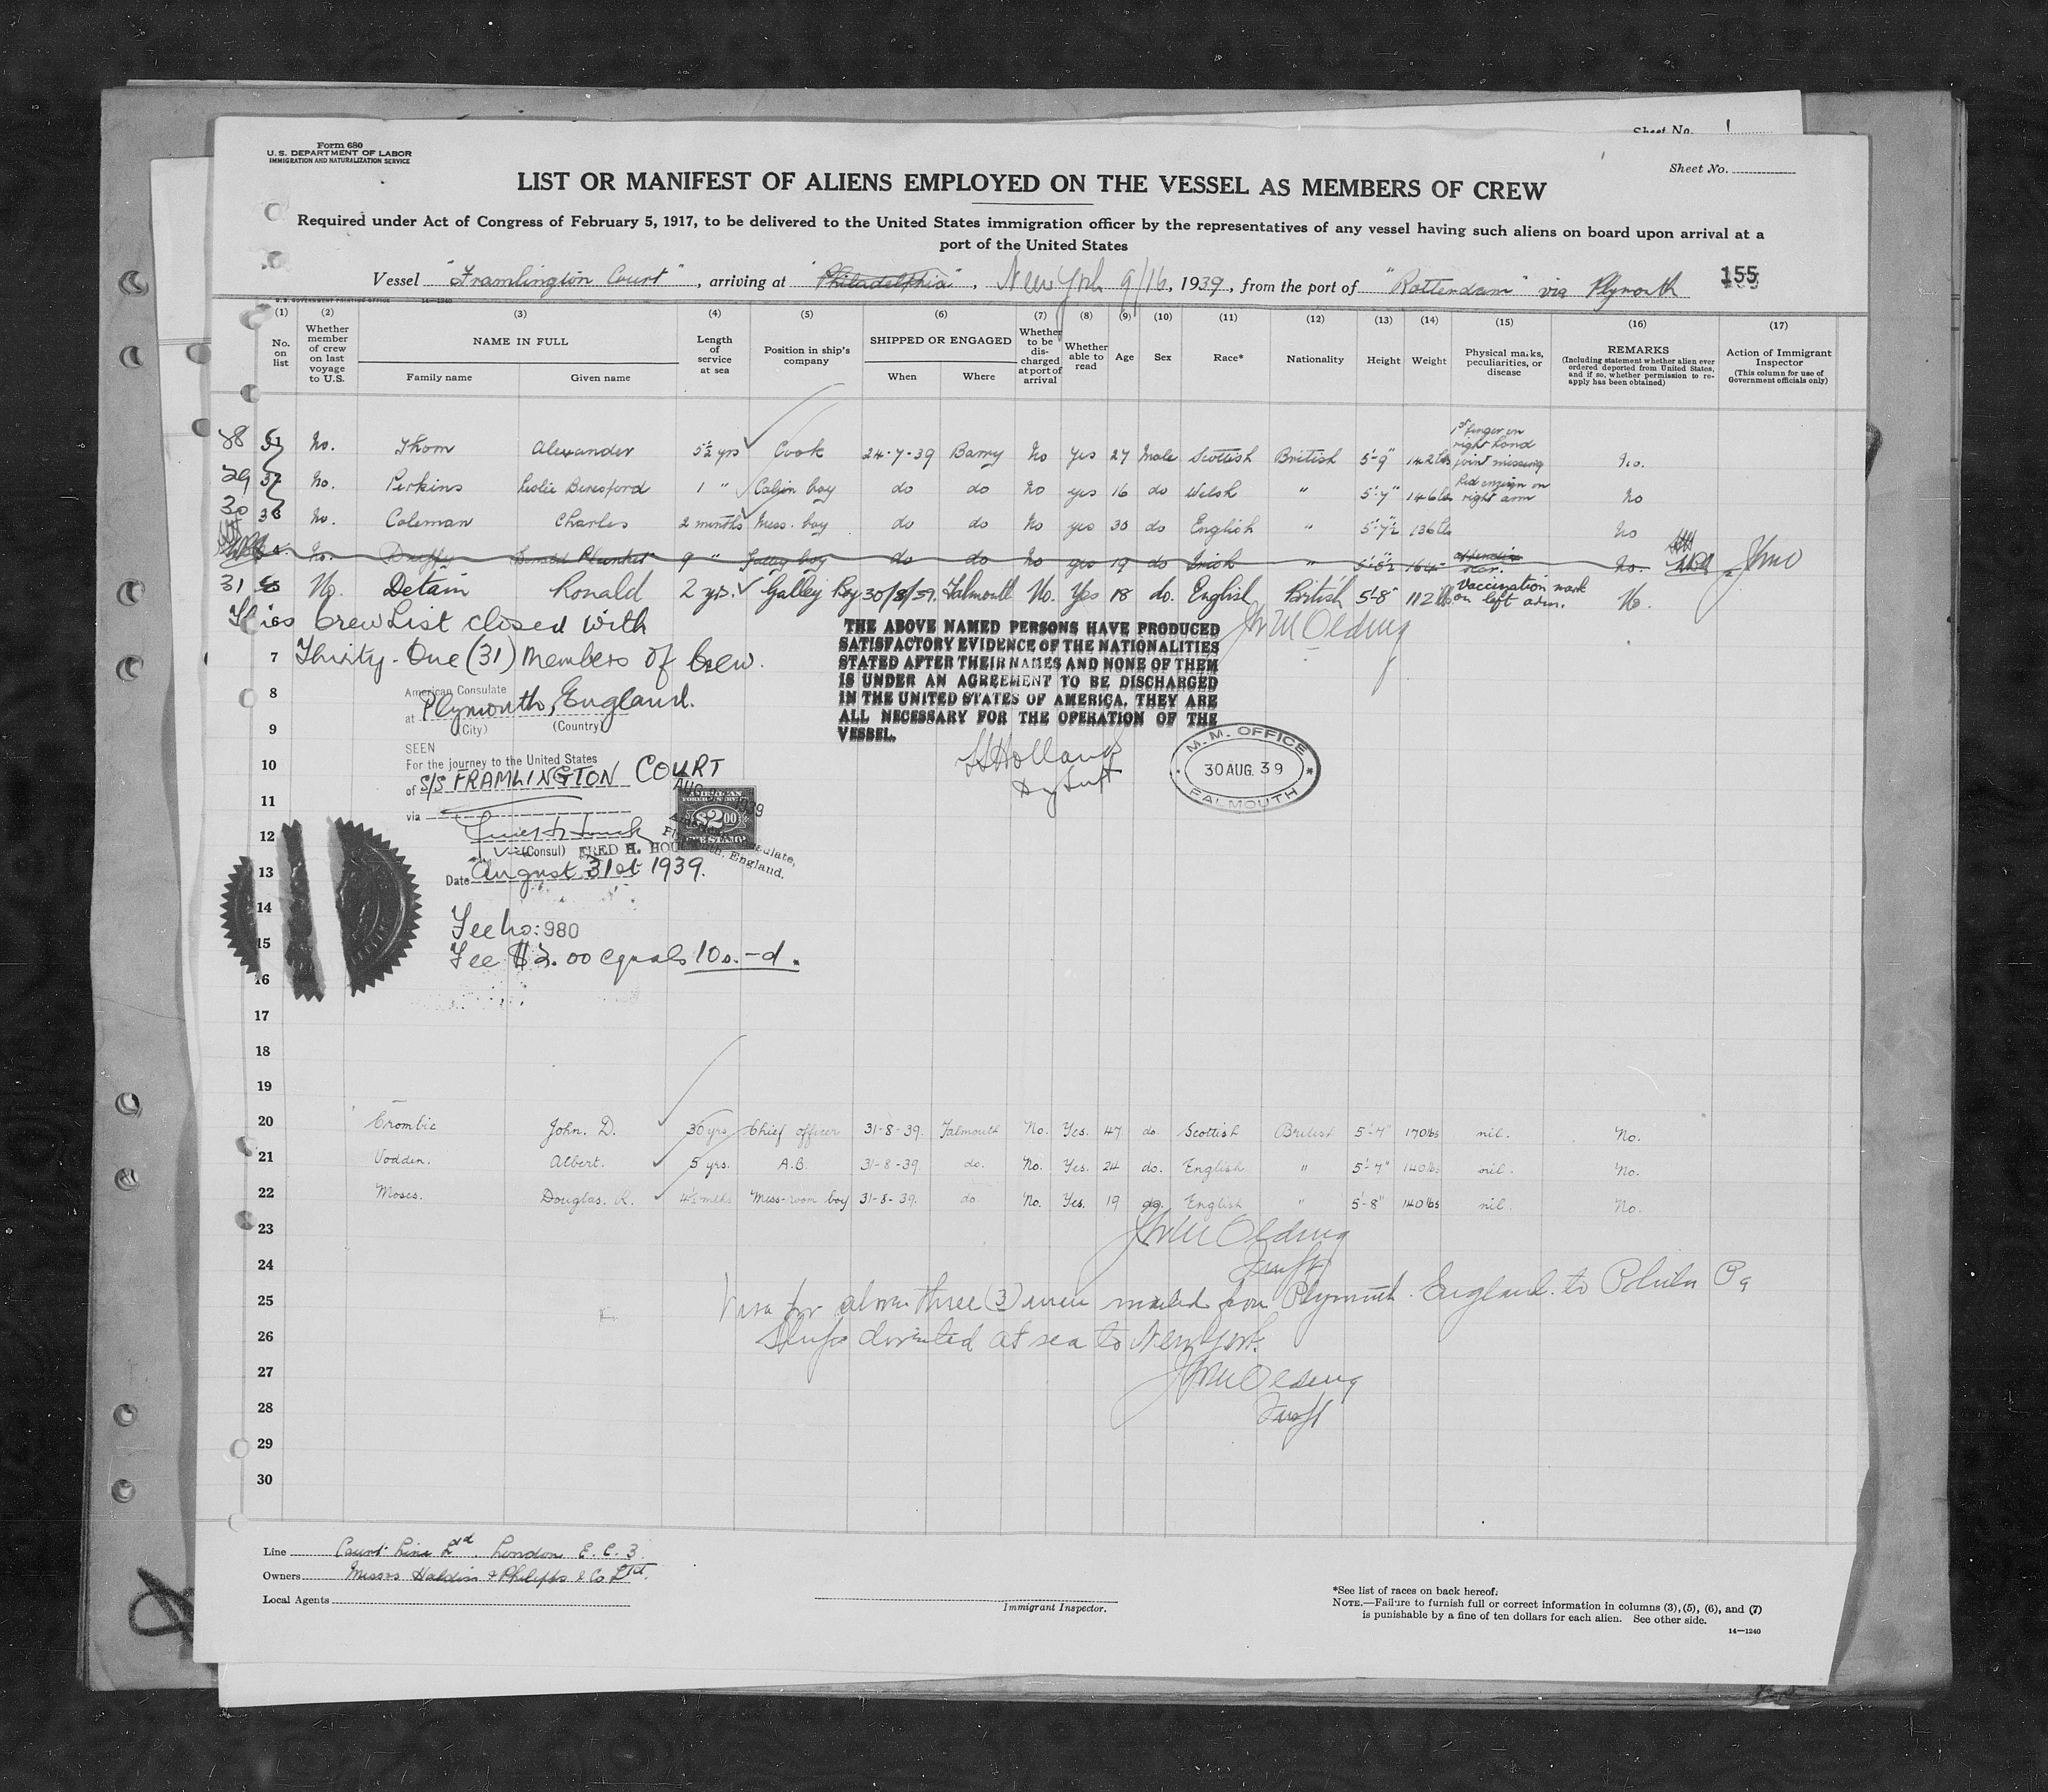 Sheet No. 1
Form 680
U. S. DEPARTMENT OF LABOR
IMMIGRATION AND NATURALIZATION SERVICE
Sheet No.
LIST OR MANIFEST OF ALIENS EMPLOYED ON THE VESSEL AS MEMBERS OF CREW
Required under Act of Congress of February 5, 1917, to be delivered to the United States immigration officer by the representatives of any vessel having such aliens on board upon arrival at a
port of the United States
Vessel "Framlington Court", arriving at "Philadelphia", New York 9/16, 1939, from the port of "Rotterdam" via Plymouth 155
U. S. GOVERNMENT PRINTING OFFICE 14—1240
(1) (2) (3) (4) (5) (6) (7) (8) (9) (10) (11) (12) (13) (14) (15) (16) (17)
No. on list
Whether member of crew on last voyage to U.S.
NAME IN FULL
Family name Given name
Length of service at sea
Position in ship's company
SHIPPED OR ENGAGED
When Where
Whether to be discharged at port of arrival
Whether able to read
Age Sex Race* Nationality Height Weight
Physical marks, peculiarities, or disease
REMARKS
(Including statement whether alien ever ordered deported from United States, and if so, whether permission to reapply has been obtained)
Action of Immigrant Inspector
(This column for use of Government officials only)
28 No. Thom Alexander 5½ yrs Cook 24-7-39 Barry No Yes 27 Male Scottish British 5'-9" 142 lbs 1st finger on right hand joint missing No.
29 No. Perkins Leslie Beresford 1 " Cabin boy do do No yes 16 do Welsh " 5'-7" 146 lbs Red ensign on right arm No
30 No. Coleman Charles 2 months Mess. boy do do No yes 30 do English " 5'-7½" 136 lbs No
No. Duffy Plunket 9 " Galley boy do do No yes 19 do Irish " 5'-8½" 164 scar. No.
31 No. Detain Ronald 2 yrs. Galley Boy 30/8/39. Falmouth No. Yes 18 do. English British 5'-8" 112 lbs. Vaccination mark on left arm. No.
This Crew List closed with
7 Thirty-One (31) Members of Crew.
THE ABOVE NAMED PERSONS HAVE PRODUCED
SATISFACTORY EVIDENCE OF THE NATIONALITIES
STATED AFTER THEIR NAMES AND NONE OF THEM
IS UNDER AN AGREEMENT TO BE DISCHARGED
IN THE UNITED STATES OF AMERICA. THEY ARE
ALL NECESSARY FOR THE OPERATION OF THE
VESSEL.
JWM Olding
8 American Consulate
at Plymouth, England.
9 (City) (Country)
SEEN
10 For the journey to the United States
of S/S FRAMLINGTON COURT
11 via
M. M. OFFICE
30 AUG. 39
FALMOUTH
$2.00
12 (Consul) FRED H. HOUCK
13 Date August 31st 1939.
14 Fee No: 980
15 Fee $2.00 equals 10s.-d.
16
17
18
19
20 Crombie John. D. 30 yrs Chief officer 31-8-39. Falmouth No. Yes. 47 do. Scottish British 5'-7" 170 lbs nil. No.
21 Vodden. Albert. 5 yrs. A.B. 31-8-39. do. No. Yes. 24 do. English " 5'-7" 140 lbs nil. No.
22 Moses. Douglas. R. 4½ mths Mess-room boy 31-8-39. do No. Yes. 19 do. English " 5'-8" 140 lbs nil. No.
23 JWM Olding
24
25 Visa for above three (3) men mailed from Plymouth. England. to Phila Pa
26 Ship diverted at sea to New York.
27 JWM Olding
28
29
30
Line Court Line Ltd. London E. C. 3.
Owners Messrs Haldin & Philipps & Co. Ltd.
Local Agents
Immigrant Inspector.
*See list of races on back hereof.
NOTE.—Failure to furnish full or correct information in columns (3), (5), (6), and (7)
is punishable by a fine of ten dollars for each alien. See other side.
14—1240